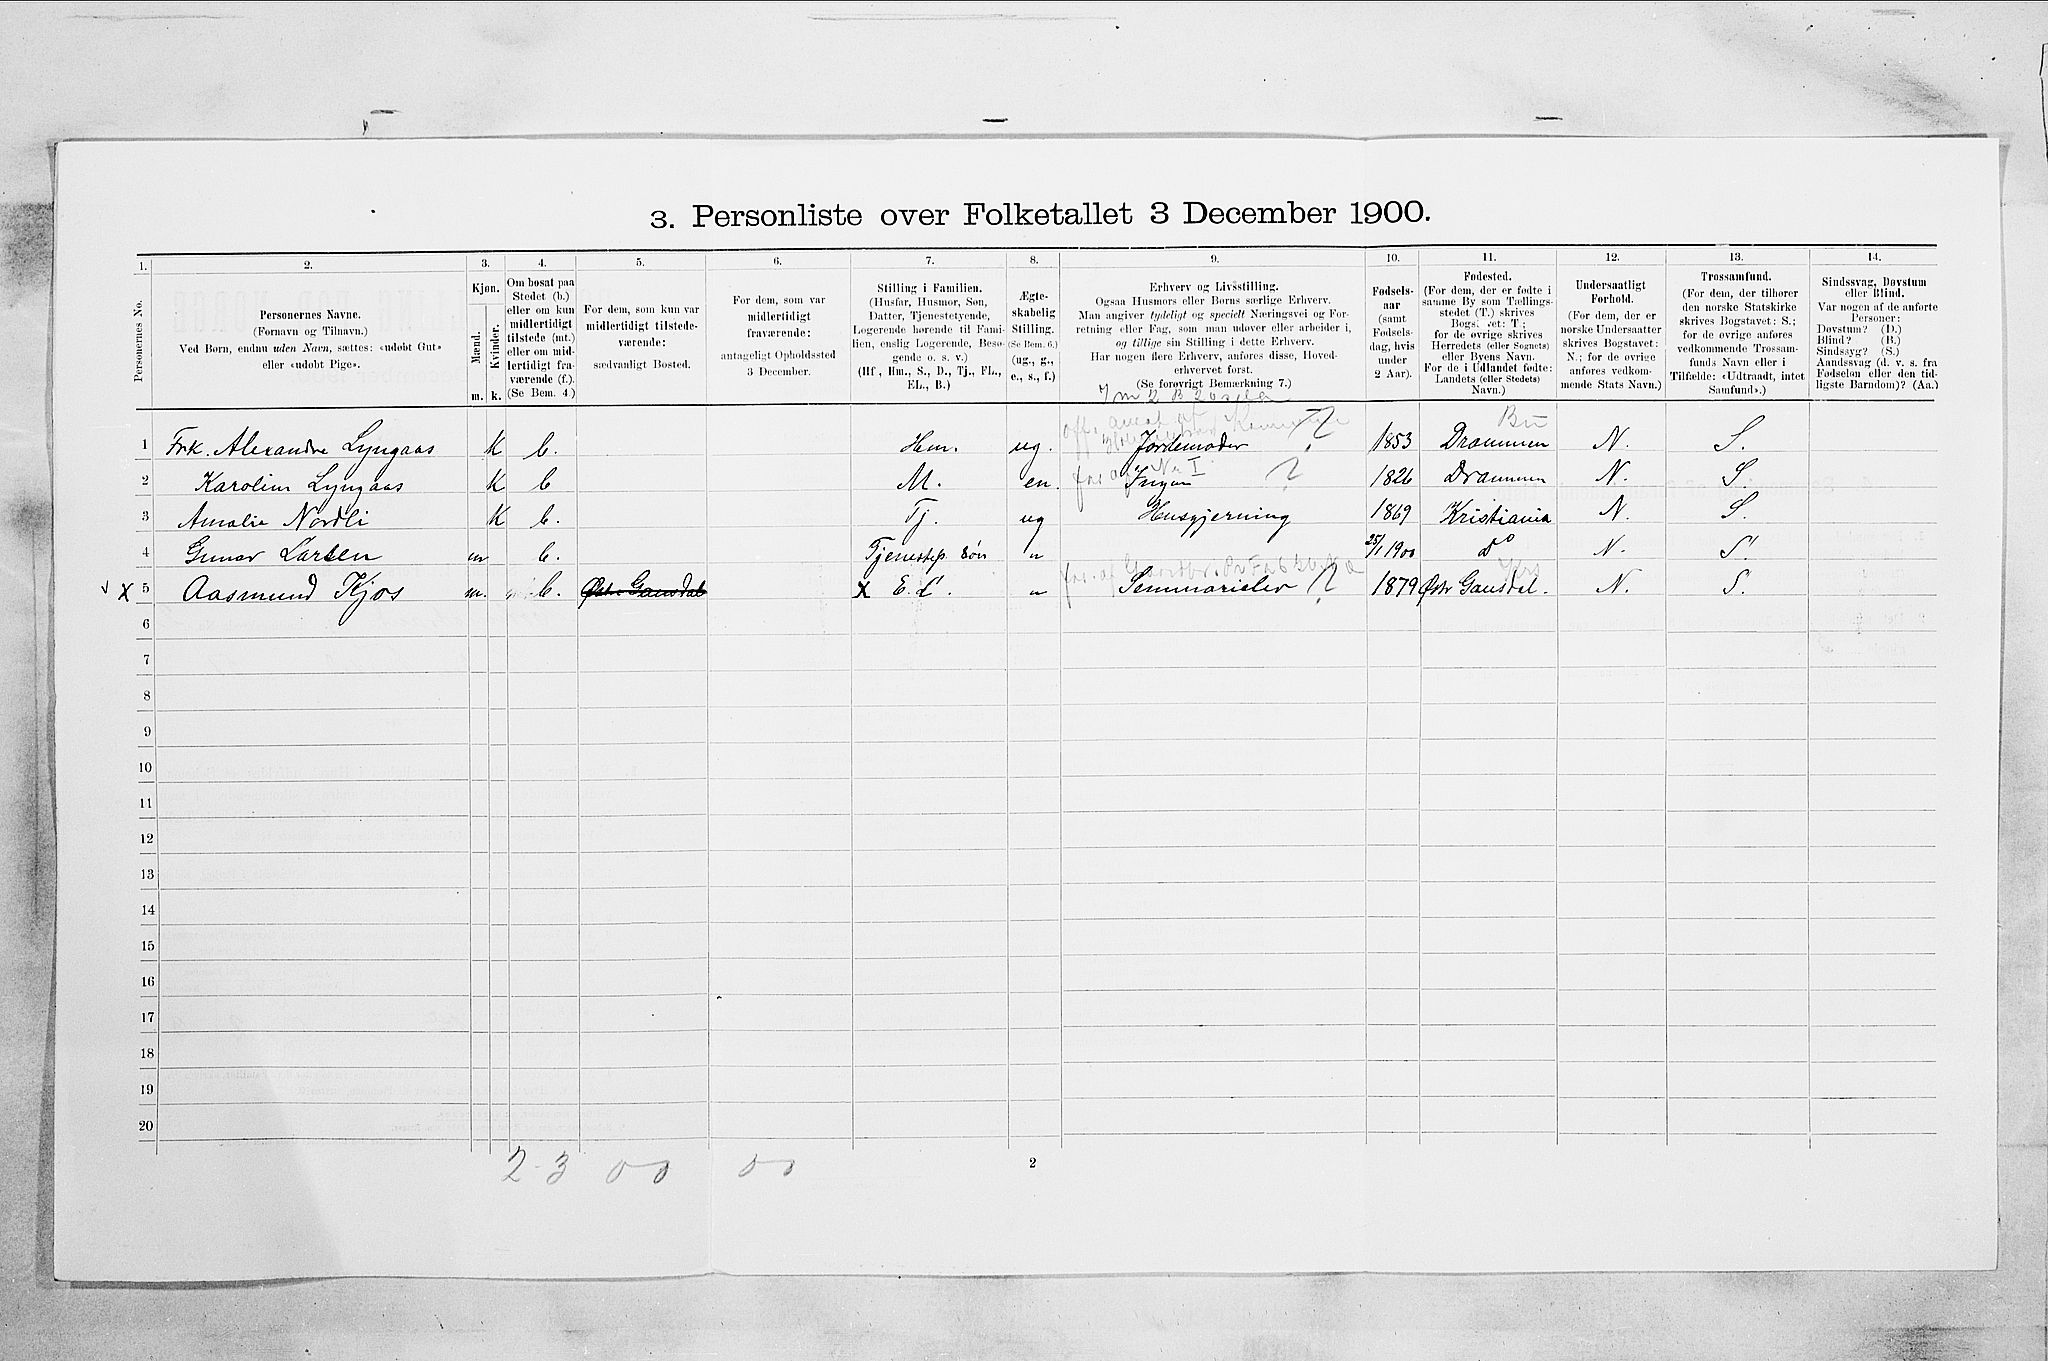 3. Personliste over Folketallet 3 December 1900.
1. 2. 3. 4. 5. 6. 7. 8. 9. 10. 11. 12. 13. 14.
Personernes No.
Personernes Navne.
(Fornavn og Tilnavn.)
Ved Børn, endnu uden Navn, sættes: «udøbt Gut»
eller «udøbt Pige».
Kjøn.
Mænd.
Kvinder.
m. k.
Om bosat paa
Stedet (b.)
eller om kun
midlertidigt
tilstede (mt.)
eller om mid-
lertidigt fra-
værende (f.).
(Se Bem. 4.)
For dem, som kun var
midlertidigt tilstede-
værende:
sædvanligt Bosted.
For dem, som var
midlertidigt
fraværende:
antageligt Opholdssted
3 December.
Stilling i Familien.
(Husfar, Husmor, Søn,
Datter, Tjenestetyende,
Logerende hørende til Fami-
lien, enslig Logerende, Besø-
gende o. s. v.)
(Hf., Hm., S., D., Tj., FL.,
EL., B.)
Ægte-
skabelig
Stilling.
(Se Bem. 6.)
(ug., g.,
e., s., f.)
Erhverv og Livsstilling.
Ogsaa Husmors eller Børns særlige Erhverv.
Man angiver tydeligt og specielt Næringsvei og For-
retning eller Fag, som man udøver eller arbeider i,
og tillige sin Stilling i dette Erhverv.
Har nogen flere Erhverv, anføres disse, Hoved-
erhvervet først.
(Se forøvrigt Bemærkning 7.)
Fødsels-
aar
(samt
Fødsels-
dag, hvis
under
2 Aar).
Fødested.
(For dem, der er fødte i
samme By som Tællings-
stedet (T.) skrives
Bogstavet: T.;
for de øvrige skrives
Herredets (eller Sognets)
eller Byens Navn.
For de i Udlandet fødte:
Landets (eller Stedets)
Navn.)
Undersaatligt
Forhold.
(For dem, der er
norske Undersaatter
skrives Bogstavet:
N.; for de øvrige
anføres vedkom-
mende Stats Navn.)
Trossamfund.
(For dem, der tilhører
den norske Statskirke
skrives Bogstavet: S.;
for de øvrige anføres
vedkommende Trossam-
funds Navn eller i
Tilfælde: «Udtraadt, intet
Samfund».)
Sindssvag, Døvstum
eller Blind.
Var nogen af de anførte
Personer:
Døvstum? (D.)
Blind? (B.)
Sindssyg? (S.)
Aandssvag (d. v. s. fra
Fødselen eller den tid-
ligste Barndom)? (Aa.)
1 Frk. Alexandra Lyngaas K b. Hm. ug. Jordemoder ? 1853 Drammen N. S.
2 Karolin Lyngaas K b M. en. Ingen ? 1826 Drammen N. S.
3 Amalie Nordli K b. Tj. ug Husgjerning 1869 Kristiania N. S.
4 Gunar Larsen m b. Tjenestep. Søn " 25/1 1900 Do N. S.
X 5 Aasmund Kjos m. b. Østr Gausdal X E. L. " Seminarielev ? 1879 Østr Gausdal. N. S.
6
7
8
9
10
11
12
13
14
15
16
17
18
19
20
2-3 0 0 0 0
2